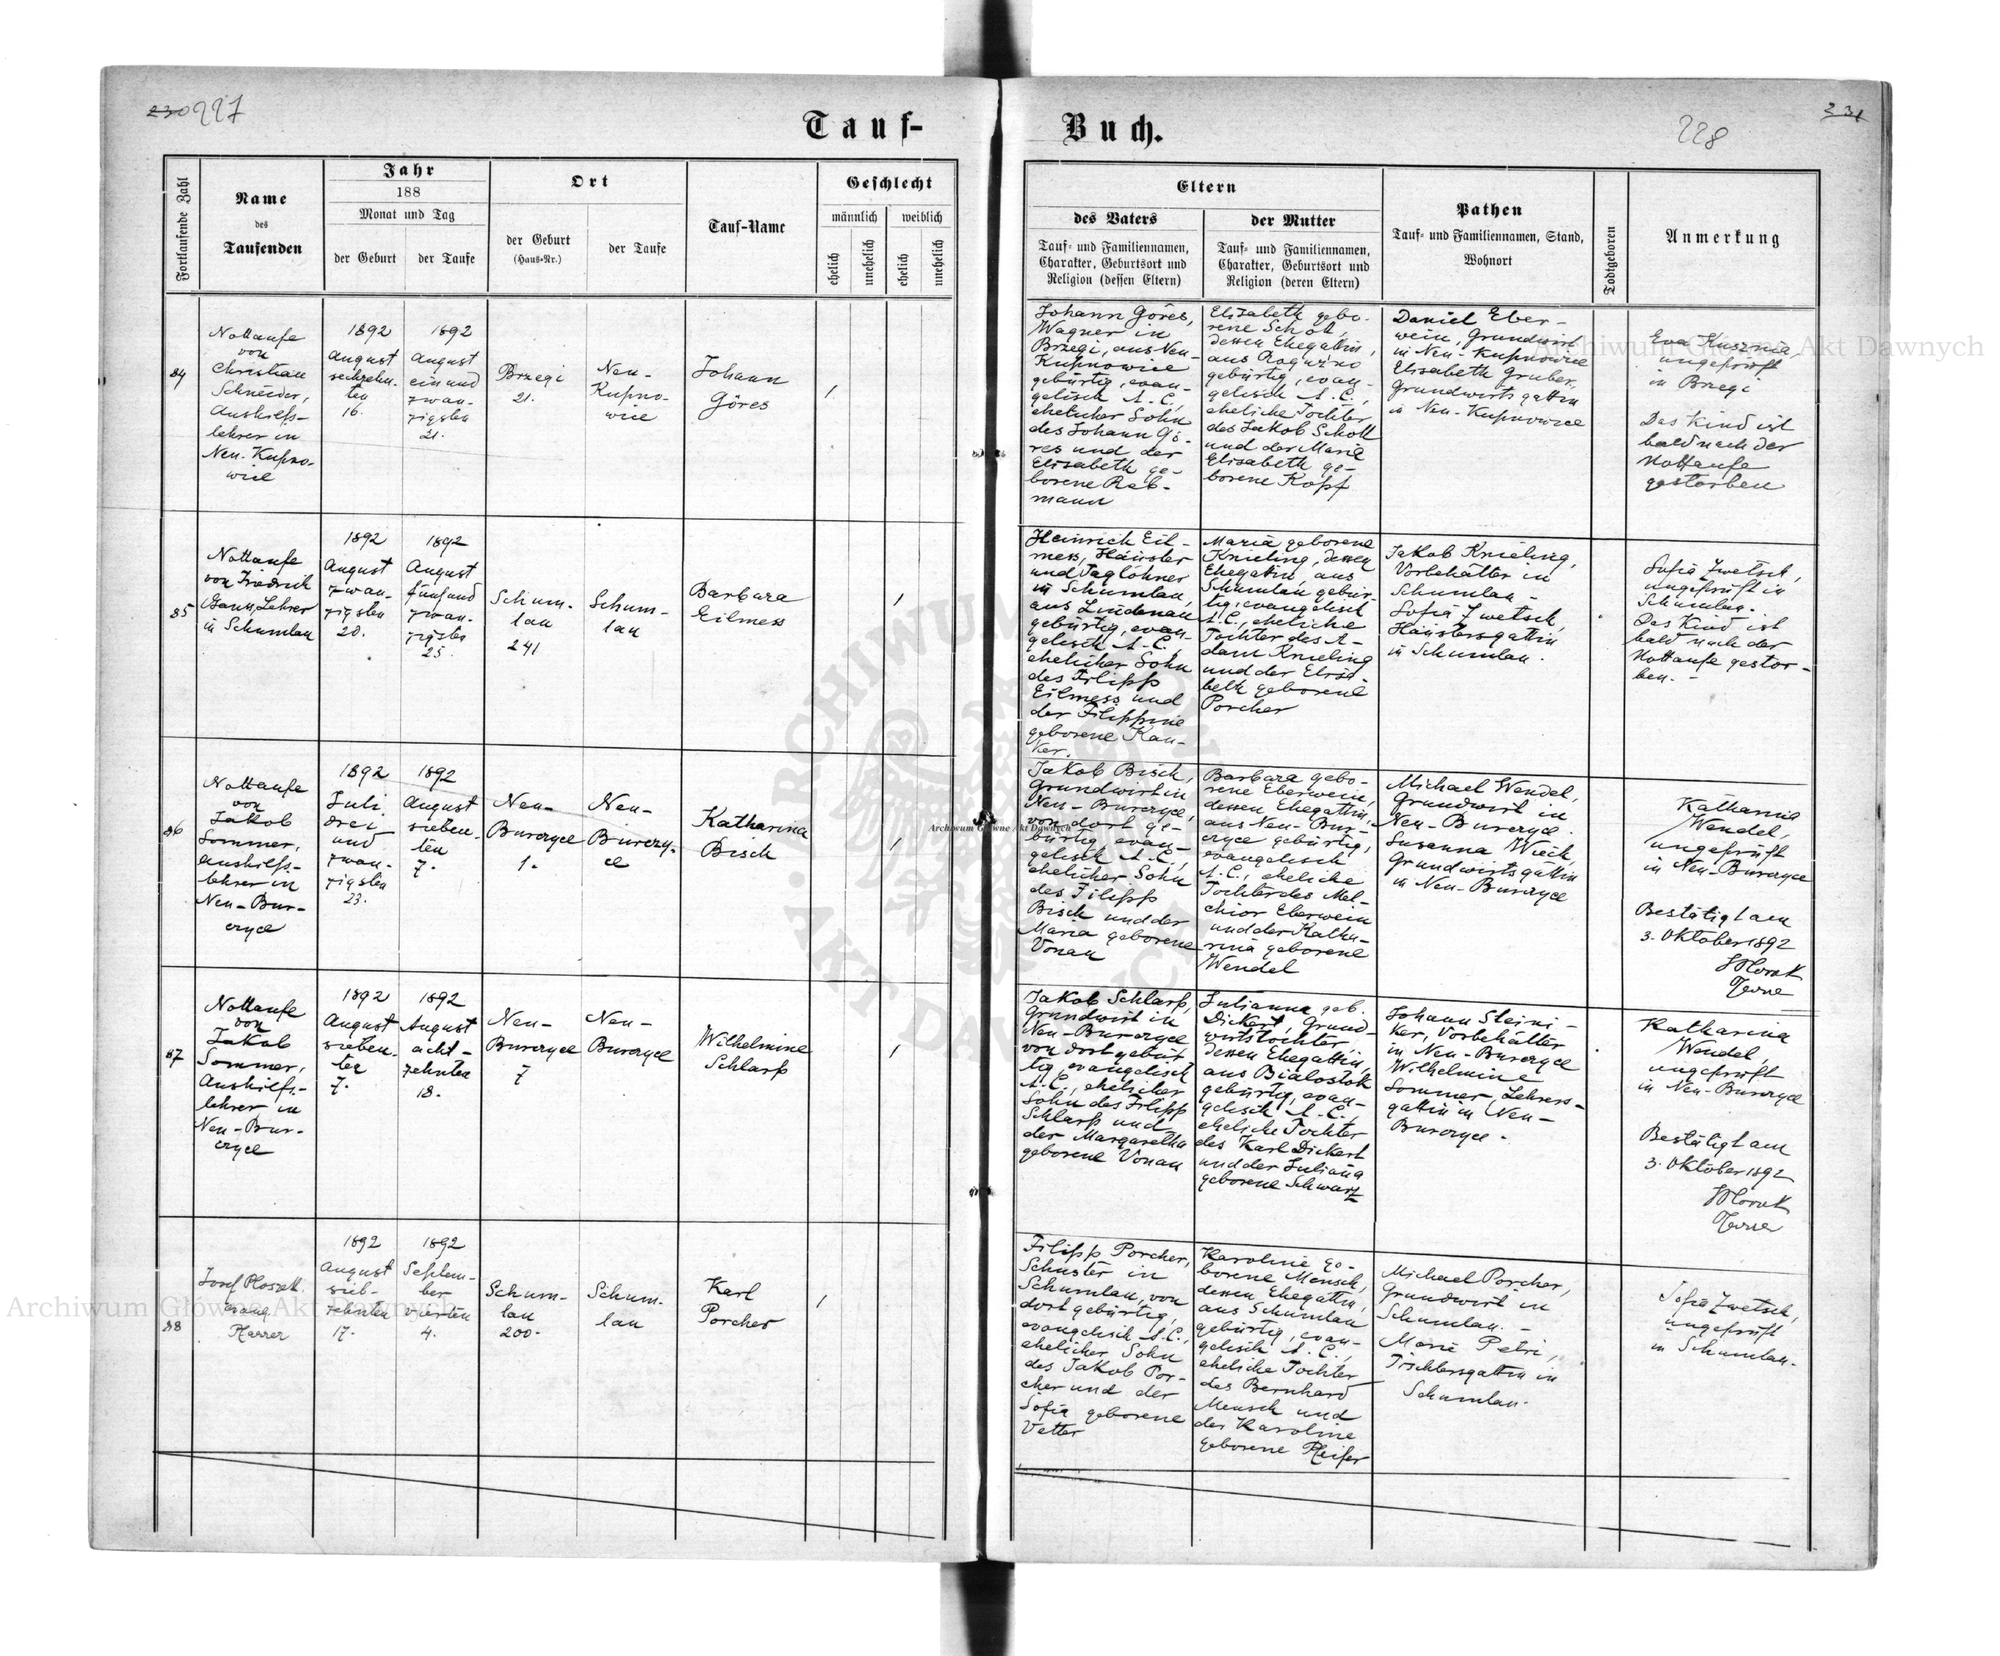 230 227
Tauf-
Buch.
228
231
Fortlaufende Zahl
Name
des
Taufenden
Jahr
188
Monat und Tag
der Geburt
der Taufe
Ort
der Geburt
(Haus-Nr.)
der Taufe
Tauf-Name
Geschlecht
männlich
weiblich
ehelich
unehelich
ehelich
unehelich
Eltern
des Vaters
Tauf- und Familiennamen,
Charakter, Geburtsort und
Religion (dessen Eltern)
der Mutter
Tauf- und Familiennamen,
Charakter, Geburtsort und
Religion (deren Eltern)
Pathen
Tauf- und Familiennamen, Stand,
Wohnort
Todtgeboren
Anmerkung
84
Nottaufe
von
Christian
Schneider,
Aushilfs-
lehrer in
Neu-Kupno-
wice
1892
August
sechzehn-
ten
16.
1892
August
ein und
zwan-
zigsten
21.
Brzegi
21.
Neu-
Kupno-
wice
Johann
Göres
1
Johann Göres,
Wagner in
Brzegi, aus Neu-
Kupnowice
gebürtig, evan-
gelisch A.C.,
ehelicher Sohn
des Johann Gö-
res und der
Elisabeth ge-
borene Reb-
mann
Elisabeth gebo-
rene Schott,
dessen Ehegattin,
aus Roguźno
gebürtig, evan-
gelisch A.C.,
eheliche Tochter
des Jakob Schott
und der Maria
Elisabeth ge-
borene Kopf
Daniel Eber-
wein, Grundwirt
in Neu-Kupnowice
Elisabeth Gruber,
Grundwirtsgattin
in Neu-Kupnowice
Eva Kusznia,
ungeprüft
in Brzegi
Das Kind ist
bald nach der
Nottaufe
gestorben
85
Nottaufe
von Friedrich
Lehrer
in Schumlau
1892
August
zwan-
zigsten
20.
1892
August
fünf und
zwan-
zigsten
25.
Schum-
lau
241
Schum-
lau
Barbara
Eilmess
1
Heinrich Eil-
mess, Häusler
und Taglöhner
in Schumlau,
aus Lindenau
gebürtig, evan-
gelisch A.C.,
ehelicher Sohn
des Filipp
Eilmess und
der Filippine
geborene Kan-
ker.
Maria geborene
Knieling, dessen
Ehegattin, aus
Schumlau gebür-
tig, evangelisch
A.C., eheliche
Tochter des A-
dam Knieling
und der Elisa-
beth geborene
Porcher
Jakob Knieling,
Vorbehälter in
Schumlau -
Sofia Zwetsch,
Häuslersgattin
in Schumlau.
Sofia Zwetsch,
ungeprüft in
Schumlau.
Das Kind ist
bald nach der
Nottaufe gestor-
ben. -
86
Nottaufe
von
Jakob
Sommer,
Aushilfs-
lehrer in
Neu-Bur-
czyce
1892
Juli
drei
und
zwan-
zigsten
23.
1892
August
sieben-
ten
7.
Neu-
Burczyce
1.
Neu-
Burczy-
ce
Katharina
Bisch
1
Jakob Bisch,
Grundwirt in
Neu-Burczyce,
von dort ge-
bürtig, evan-
gelisch A.C.,
ehelicher Sohn
des Filipp
Bisch und der
Maria geborene
Vonau
Barbara gebo-
rene Eberwein,
dessen Ehegattin,
aus Neu-Bur-
czyce gebürtig,
evangelisch
A.C., eheliche
Tochter des Mel-
chior Eberwein
und der Katha-
rina geborene
Wendel
Michael Wendel,
Grundwirt in
Neu-Burczyce.
Susanna Wiech,
Grundwirtsgattin
in Neu-Burczyce
Katharina
Wendel,
ungeprüft
in Neu-Burczyce
Bestätigt am
3. Oktober 1892
87
Nottaufe
von
Jakob
Sommer,
Aushilfs-
lehrer in
Neu-Bur-
czyce
1892
August
sieben-
ten
7.
1892
August
acht-
zehnten
18.
Neu-
Burczyce
7
Neu-
Burczyce
Wilhelmine
Schlarp
1
Jakob Schlarp,
Grundwirt in
Neu-Burczyce
von dort gebür-
tig, evangelisch
A.C., ehelicher
Sohn des Filipp
Schlarp und
der Margaretha
geborene Vonau
Julianna geb.
Dickert, Grund-
wirtstochter
dessen Ehegattin,
aus Bialostok
gebürtig, evan-
gelisch A.C.,
eheliche Tochter
des Karl Dickert
und der Juliana
geborene Schwarz
Johann Steini-
ker, Vorbehälter
in Neu-Burczyce
Wilhelmine
Sommer, Lehrers-
gattin in Neu-
Burczyce.
Katharina
Wendel,
ungeprüft
in Neu-Burczyce
Bestätigt am
3. Oktober 1892
88
Josef Ploszek
evang.
Pfarrer
1892
August
sieb-
zehnten
17.
1892
Septem-
ber
vierten
4.
Schum-
lau
200.
Schum-
lau
Karl
Porcher
1
Filipp Porcher,
Schuster in
Schumlau, von
dort gebürtig,
evangelisch A.C.,
ehelicher Sohn
des Jakob Por-
cher und der
Sofia geborene
Vetter
Karoline ge-
borene Mensch,
dessen Ehegattin,
aus Schumlau
gebürtig, evan-
gelisch A.C.,
eheliche Tochter
des Bernhard
Mensch und
der Karoline
geborene Pfeifer
Michael Porcher,
Grundwirt in
Schumlau. -
Marie Petri,
Tischlersgattin in
Schumlau.
Sofia Zwetsch,
ungeprüft
in Schumlau.
Archiwum Główne Akt Dawnych
Archiwum Główne Akt Dawnych
Archiwum Główne Akt Dawnych